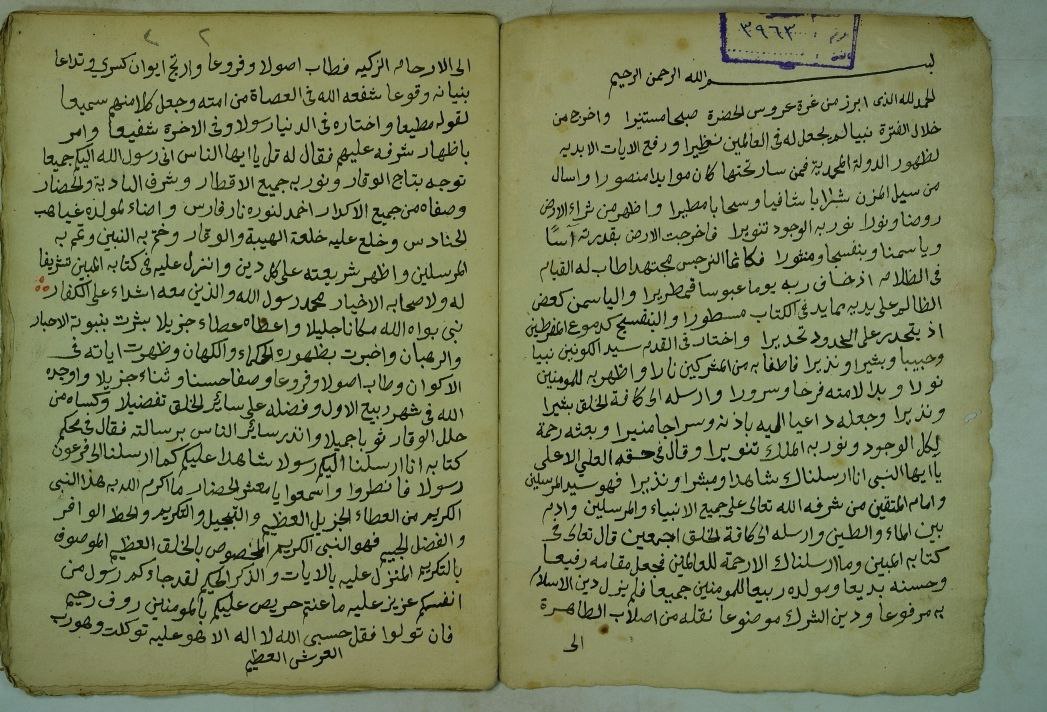 ٣٩٦٣
بسم الله الرحمن الرحيم
الحمد لله الذى ابرز من غرة عروس الحضرة صبحا مستنيرا واخرج من
خلال الفترة نبيا لم يجعل له فى العالمين نظيرا ورفع الايات الابديه
لظهور الدولة المحمدية فمن سار تحتها كان مويدا منصورا واسال
من سيل المزن شرابا شافيا وسحابا مطيرا واظهر من ثراء الارض
روضا ونورا نور به الوجود تنويرا فاخرجت الارض بقدرته آسًا
وياسمنا وبنفسجا ومنثورا فكانما النرجس مجتهد اطاب له القيام
فى الظلام اذ خاف ربه يوما عبوسا قمطريرا والياسمن كعض
الظالم على يديه بما يد فى الكتاب مسطورا والبنفسج كدموع المفرطين
اذ يتحدر على الخدود تحديرا واختار فى القدم سيد الكونين نبيا
وحبيبا وبشيرا ونذيرا فاطفا به من المشركين نارا واظهر به للمومنين
نورا وبدلا لامته فرحا وسرورا وارسله الى كافة الخلق بشيرا
ونذيرا وجعله داعيا اليه باذنه وسراجا منيرا وبعثه رحمة
لكل الوجود ونور به الملك تنويرا وقال فى حقه العلي الاعلى
يا ايها النبى انا ارسلناك شاهدا ومبشرا ونذيرا فهو سيد المرسلين
وامام المتقين من شرفه الله تعالى على جميع الانبياء والمرسلين وادم
بين الماء والطين وارسله الى كافة الخلق اجمعين قال تعالى فى
كتابه المبين وما ارسلناك الا رحمة للعالمين فجعل مقامه رفيعا
وحسنه بديعا ومولده ربيعا للمومنين جميعا فلم يزل دين الاسلام
به مرفوعا ودين الشرك موضوعا نقله من اصلاب الطاهرة
الى
٢
الى الارحام الزكيه فطاب اصولا وفروعا وارتج ايوان كسرى وتداعا
بنيانه وقوعا شفعه الله فى العصاة من امته وجعل كلا منهم سميعا
لقوله مطيعا واختاره فى الدنيا رسولا وفى الاخرة شفيعا وامر
باظهار شرفه عليهم فقال له قل يا ايها الناس انى رسول الله اليكم جميعا
توجه بتاج الوقار ونور به جميع الاقطار وشرف البادية والحضار
وصفاه من جميع الاكدار اخمد لنوره نار فارس واضاء لمولده غياهب
الحنادس وخلع عليه خلعة الهيبة والوقار وختم به النبين وتمم به
المرسلين واظهر شريعته على كل دين وانزل عليه فى كتابه المبين تشريفا
له ولاصحابه الاخيار محمد رسول الله والذين معه اشداء على الكفار
نبى بواه الله مكانا جليلا واعطاه عطاء جزيلا بشرت بنبوته الاحبار
والرهبان واخبرت بظهوره الحكماء والكهان وظهرت اياته فى
الاكوان وطاب اصولا وفروعا وصفا حسنا وثناء جزيلا واوجده
الله فى شهر ربيع الاول وفضله على سائر الخلق تفضيلا وكساه من
حلل الوقار ثوبا جميلا وانذر سائر الناس برسالته فقال فى محكم
كتابه انا ارسلنا اليكم رسولا شاهدا عليكم كما ارسلنا الى فرعون
رسولا فانظروا واسمعوا يا معشر الحضار ما اكرم الله به هذا النبى
الكريم من العطاء الجزيل العظيم والتبجيل والتكريم والحظ الوافر
والفضل الجسيم فهو النبى الكريم المخصوص بالخلق العظيم الموصوف
بالتكرمة المنزل عليه بالايات والذكر الحكيم لقد جاءكم رسول من
انفسكم عزيز عليه ما عنتم حريص عليكم بالمومنين روف رحيم
فان تولوا فقل حسبى الله لا اله الا هو عليه توكلت وهو رب
العرش العظيم